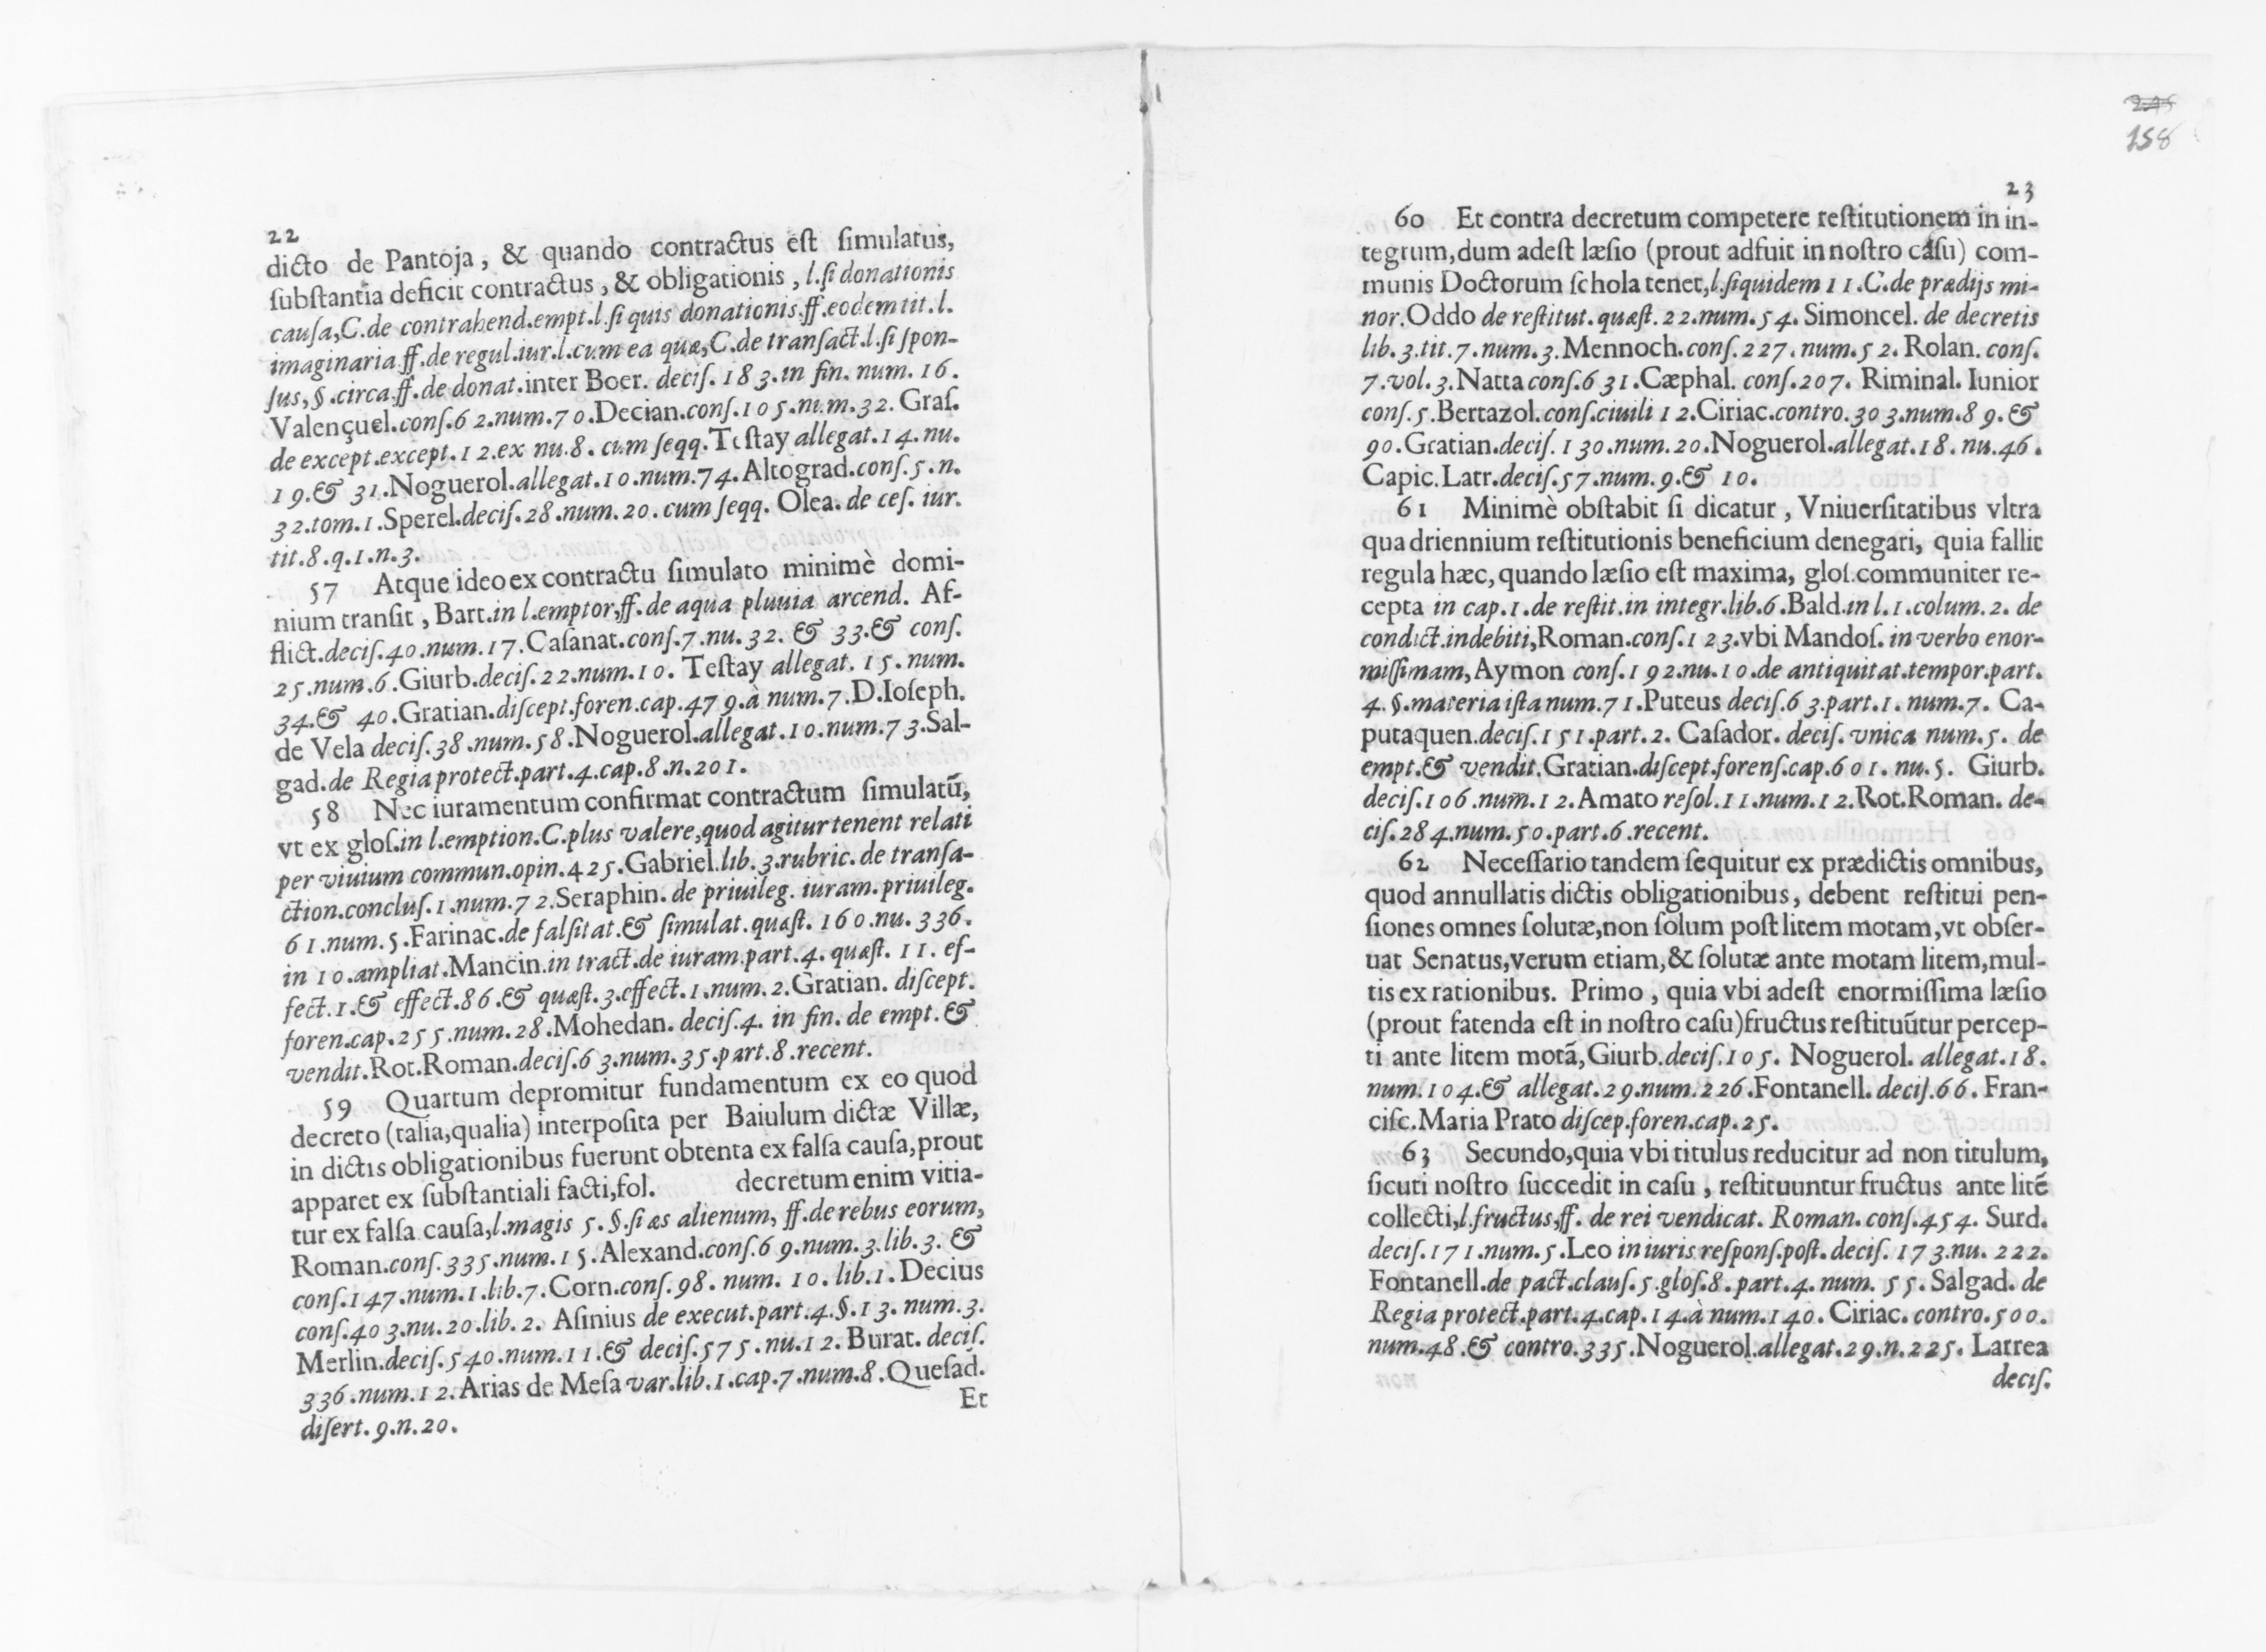 22
dicto de Pantoja, & quando contractus est simulatus,
substantia deficit contractus, & obligationis, l.si donationis
causa,C.de contrahend.empt.l.si quis donationis.ff.eodem tit.l.
imaginaria ff.de regul.iur.l.cum ea quæ,C.de transact.l.si spon-
sus,§.circa.ff.de donat.inter Boer. decis.183.in fin. num. 16.
Valençuel.cons.62.num.70.Decian.cons.105.num.32. Gras.
de except.except.12.ex nu.8. cum seqq.Testay allegat.14.nu.
19.& 31.Noguerol.allegat.10.num.74.Altograd.cons.5.n.
32.tom.1.Sperel.decis.28.num.20.cum seqq. Olea. de ces. iur.
tit.8.q.1.n.3.
57 Atque ideo ex contractu simulato minimè domi-
nium transit, Bart.in l.emptor,ff.de aqua pluuia arcend. Af-
flict.decis.40.num.17.Casanat.cons.7.nu.32. & 33.& cons.
25.num.6.Giurb.decis.22.num.10. Testay allegat. 15.num.
34.& 40.Gratian.discept.foren.cap.479.à num.7.D.Ioseph.
de Vela decis.38.num.58.Noguerol.allegat.10.num.73.Sal-
gad.de Regia protect.part.4.cap.8.n.201.
58 Nec iuramentum confirmat contractum simulatũ,
vt ex glos.in l.emption.C.plus valere,quod agitur tenent relati
per viuium commun.opin.425.Gabriel.lib.3.rubric.de transa-
ction.conclus.1.num.72.Seraphin.de priuileg. iuram.priuileg.
61.num.5.Farinac.de falsitat.& simulat.quæst. 160.nu.336.
in 10.ampliat.Mancin.in tract.de iuram.part.4. quæst. 11. ef-
fect.1.& effect.86.& quæst.3.effect.1.num.2.Gratian. discept.
foren.cap.255.num.28.Mohedan. decis.4. in fin. de empt.&
vendit.Rot.Roman.decis.63.num.35.part.8.recent.
59 Quartum depromitur fundamentum ex eo quod
decreto (talia,qualia) interposita per Baiulum dictæ Villæ,
in dictis obligationibus fuerunt obtenta ex falsa causa,prout
apparet ex substantiali facti,fol. decretum enim vitia-
tur ex falsa causa,l.magis 5.§.si æs alienum, ff.de rebus eorum,
Roman.cons.335.num.15.Alexand.cons.69.num.3.lib.3. &
cons.147.num.1.lib.7.Corn.cons.98. num. 10.lib.1.Decius
cons.403.nu.20.lib.2. Asinius de execut.part.4.§.13. num.3.
Merlin.decis.540.num.11.& decis.575.nu.12. Burat. decis.
336.num.12.Arias de Mesa var.lib.1.cap.7.num.8.Quesad.
disert.9.n.20.
Et
245
158
23
60 Et contra decretum competere restitutionem in in-
tegrum,dum adest læsio (prout adfuit in nostro casu) com-
munis Doctorum schola tenet,l.siquidem 11.C.de prædijs mi-
nor.Oddo de restitut.quæst.22.num.54. Simoncel. de decretis
lib.3.tit.7.num.3.Mennoch.cons.227.num.52. Rolan. cons.
7.vol.3.Natta cons.631.Cæphal. cons.207. Riminal. Iunior
cons.5.Bertazol.cons.ciuili 12.Ciriac.contro.303.num.89.&
90.Gratian.decis.130.num.20.Noguerol.allegat.18.nu.46.
Capic.Latr.decis.57.num.9.& 10.
61 Minimè obstabit si dicatur, Vniuersitatibus vltra
quadriennium restitutionis beneficium denegari, quia fallit
regula hæc,quando læsio est maxima, glos.communiter re-
cepta in cap.1.de restit.in integr.lib.6.Bald.in l.1.colum.2. de
condict.indebiti,Roman.cons.123.vbi Mandos. in verbo enor-
missimam,Aymon cons.192.nu.10.de antiquitat.tempor.part.
4.§.materia ista num.71.Puteus decis.63.part.1.num.7. Ca-
putaquen.decis.151.part.2. Casador. decis. vnica num.5. de
empt.& vendit.Gratian.discept.forens.cap.601. nu.5. Giurb.
decis.106.num.12.Amato resol.11.num.12.Rot.Roman. de-
cis.284.num.50.part.6.recent.
62 Necessario tandem sequitur ex prædictis omnibus,
quod annullatis dictis obligationibus, debent restitui pen-
siones omnes solutæ,non solum post litem motam,vt obser-
uat Senatus,verum etiam,& solutæ ante motam litem,mul-
tis ex rationibus. Primo, quia vbi adest enormissima læsio
(prout fatenda est in nostro casu)fructus restituũtur percep-
ti ante litem motã,Giurb.decis.105. Noguerol. allegat.18.
num.104.& allegat.29.num.226.Fontanell. decis.66. Fran-
cisc.Maria Prato discep.foren.cap.25.
63 Secundo,quia vbi titulus reducitur ad non titulum,
sicuti nostro succedit in casu, restituuntur fructus ante litẽ
collecti,l.fructus,ff. de rei vendicat. Roman. cons.454. Surd.
decis.171.num.5.Leo in iuris respons.post.decis.173.nu.222.
Fontanell.de pact.claus.5.glos.8.part.4.num. 55.Salgad. de
Regia protect.part.4.cap.14.à num.140. Ciriac. contro.500.
num.48.& contro.335.Noguerol.allegat.29.n.225. Larrea
decis.